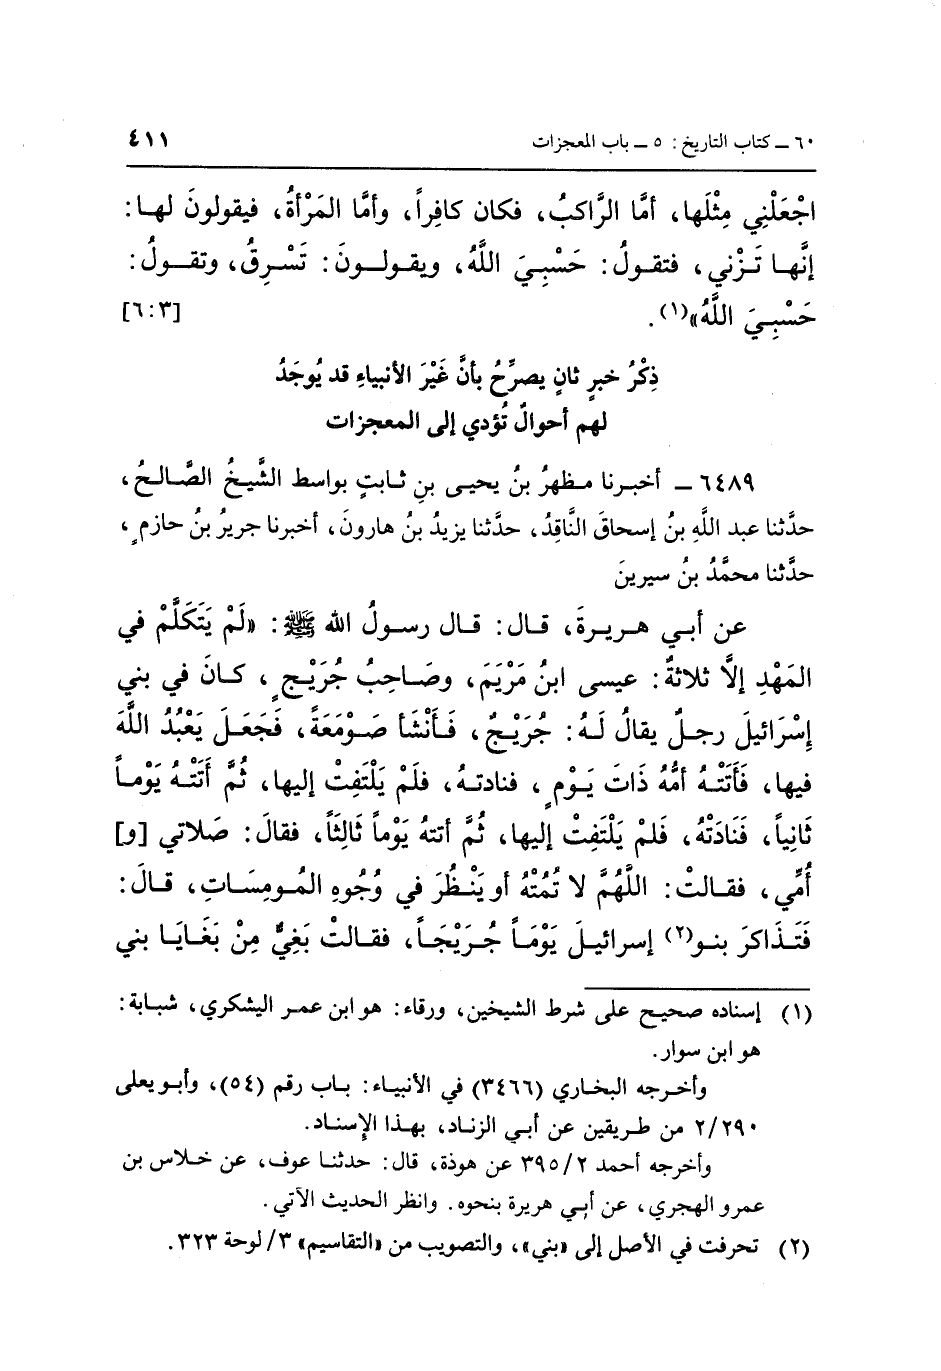 ٦٠ ــ كتاب التاريخ : ٥ ــ باب المعجزات
٤١١
اجْعَلْنِي مِثْلَها، أمَّا الرَّاكبُ، فكان كافِراً، وأمَّا المَرْأةُ، فيقولونَ لهـا:
إنَّهـا تَـزْني، فتقـولُ: حَسْبِيَ اللَّهُ، ويقـولـونَ: تَسْـرِقُ، وتقــولُ:
حَسْبِـيَ اللَّهُ»(١).
[٣:٦]
ذِكْرُ خبرٍ ثانٍ يصرِّحُ بأنَّ غَيْرَ الأنبياءِ قد يُوجَدُ
لهم أحوالٌ تُؤدي إلى المعجزات
٦٤٨٩ ــ أخبـرنا مـظهرُ بنُ يحيـى بنِ ثـابتٍ بواسط الشَّيخُ الصَّـالـحُ،
حدَّثنا عبد اللَّهِ بنُ إسحاقَ النَّاقِدُ، حدَّثنا يزيدُ بنُ هارونَ، أخبرنا جريرُ بنُ حازمٍ،
حدَّثنا محمَّدُ بنُ سيرينَ
عن أبـي هـريـرةَ، قـال: قـال رسـولُ الله ﷺ: «لَمْ يَتَكَلَّمْ في
المَهْدِ إلاَّ ثلاثةٌ: عيسى ابنُ مَرْيَمَ، وصَاحِبُ جُرَيْجٍ، كـانَ في بني
إسْرَائيلَ رجـلٌ يقالُ لَـهُ: جُرَيْـجٌ، فَـأَنْشَأ صَـوْمَعَةً، فَجَعَلَ يَعْبُدُ اللَّهَ
فيها، فَأَتَتْـهُ أمُّهُ ذَاتَ يَـوْمٍ، فنادتـهُ، فلَمْ يَلْتَفِتْ إليها، ثُمَّ أتَتْـهُ يَوْمـاً
ثَانِياً، فَنَادَتْهُ، فَلمْ يَلْتَفِتْ إليها، ثُمَّ أتتهُ يَوْماً ثَالِثاً، فقالَ: صَلاتي [و]
أُمِّي، فقـالتْ: اللَّهُمَّ لا تُمُتْهُ أو يَنْـظُرَ في وُجُوهِ المُـومِسَـاتِ، قـالَ:
فَتَـذَاكرَ بنـو(٢) إسرائيـلَ يَوْمَـاً جُـرَيْجَـاً، فقالتْ بَغِيٌّ مِنْ بَغَـايَـا بني
(١) إسناده صحيح على شرط الشيخين، ورقاء: هو ابن عمـر اليشكري، شبـابة:
هو ابن سوار.
وأخـرجه البخـاري (٣٤٦٦) في الأنبيـاء: بـاب رقم (٥٤)، وأبـو يعلى
٢/٢٩٠ من طـريقين عن أبـي الزنـاد، بهـذا الإسنـاد.
وأخرجه أحمد ٣٩٥/٢ عن هوذة، قال: حدثنـا عوف، عن خـلاس بن
عمرو الهجري، عن أبـي هريرة بنحوه. وانظر الحديث الآتي.
(٢) تحرفت في الأصل إلى «بني»، والتصويب من «التقاسيم» ٣/ لوحة ٣٢٣.